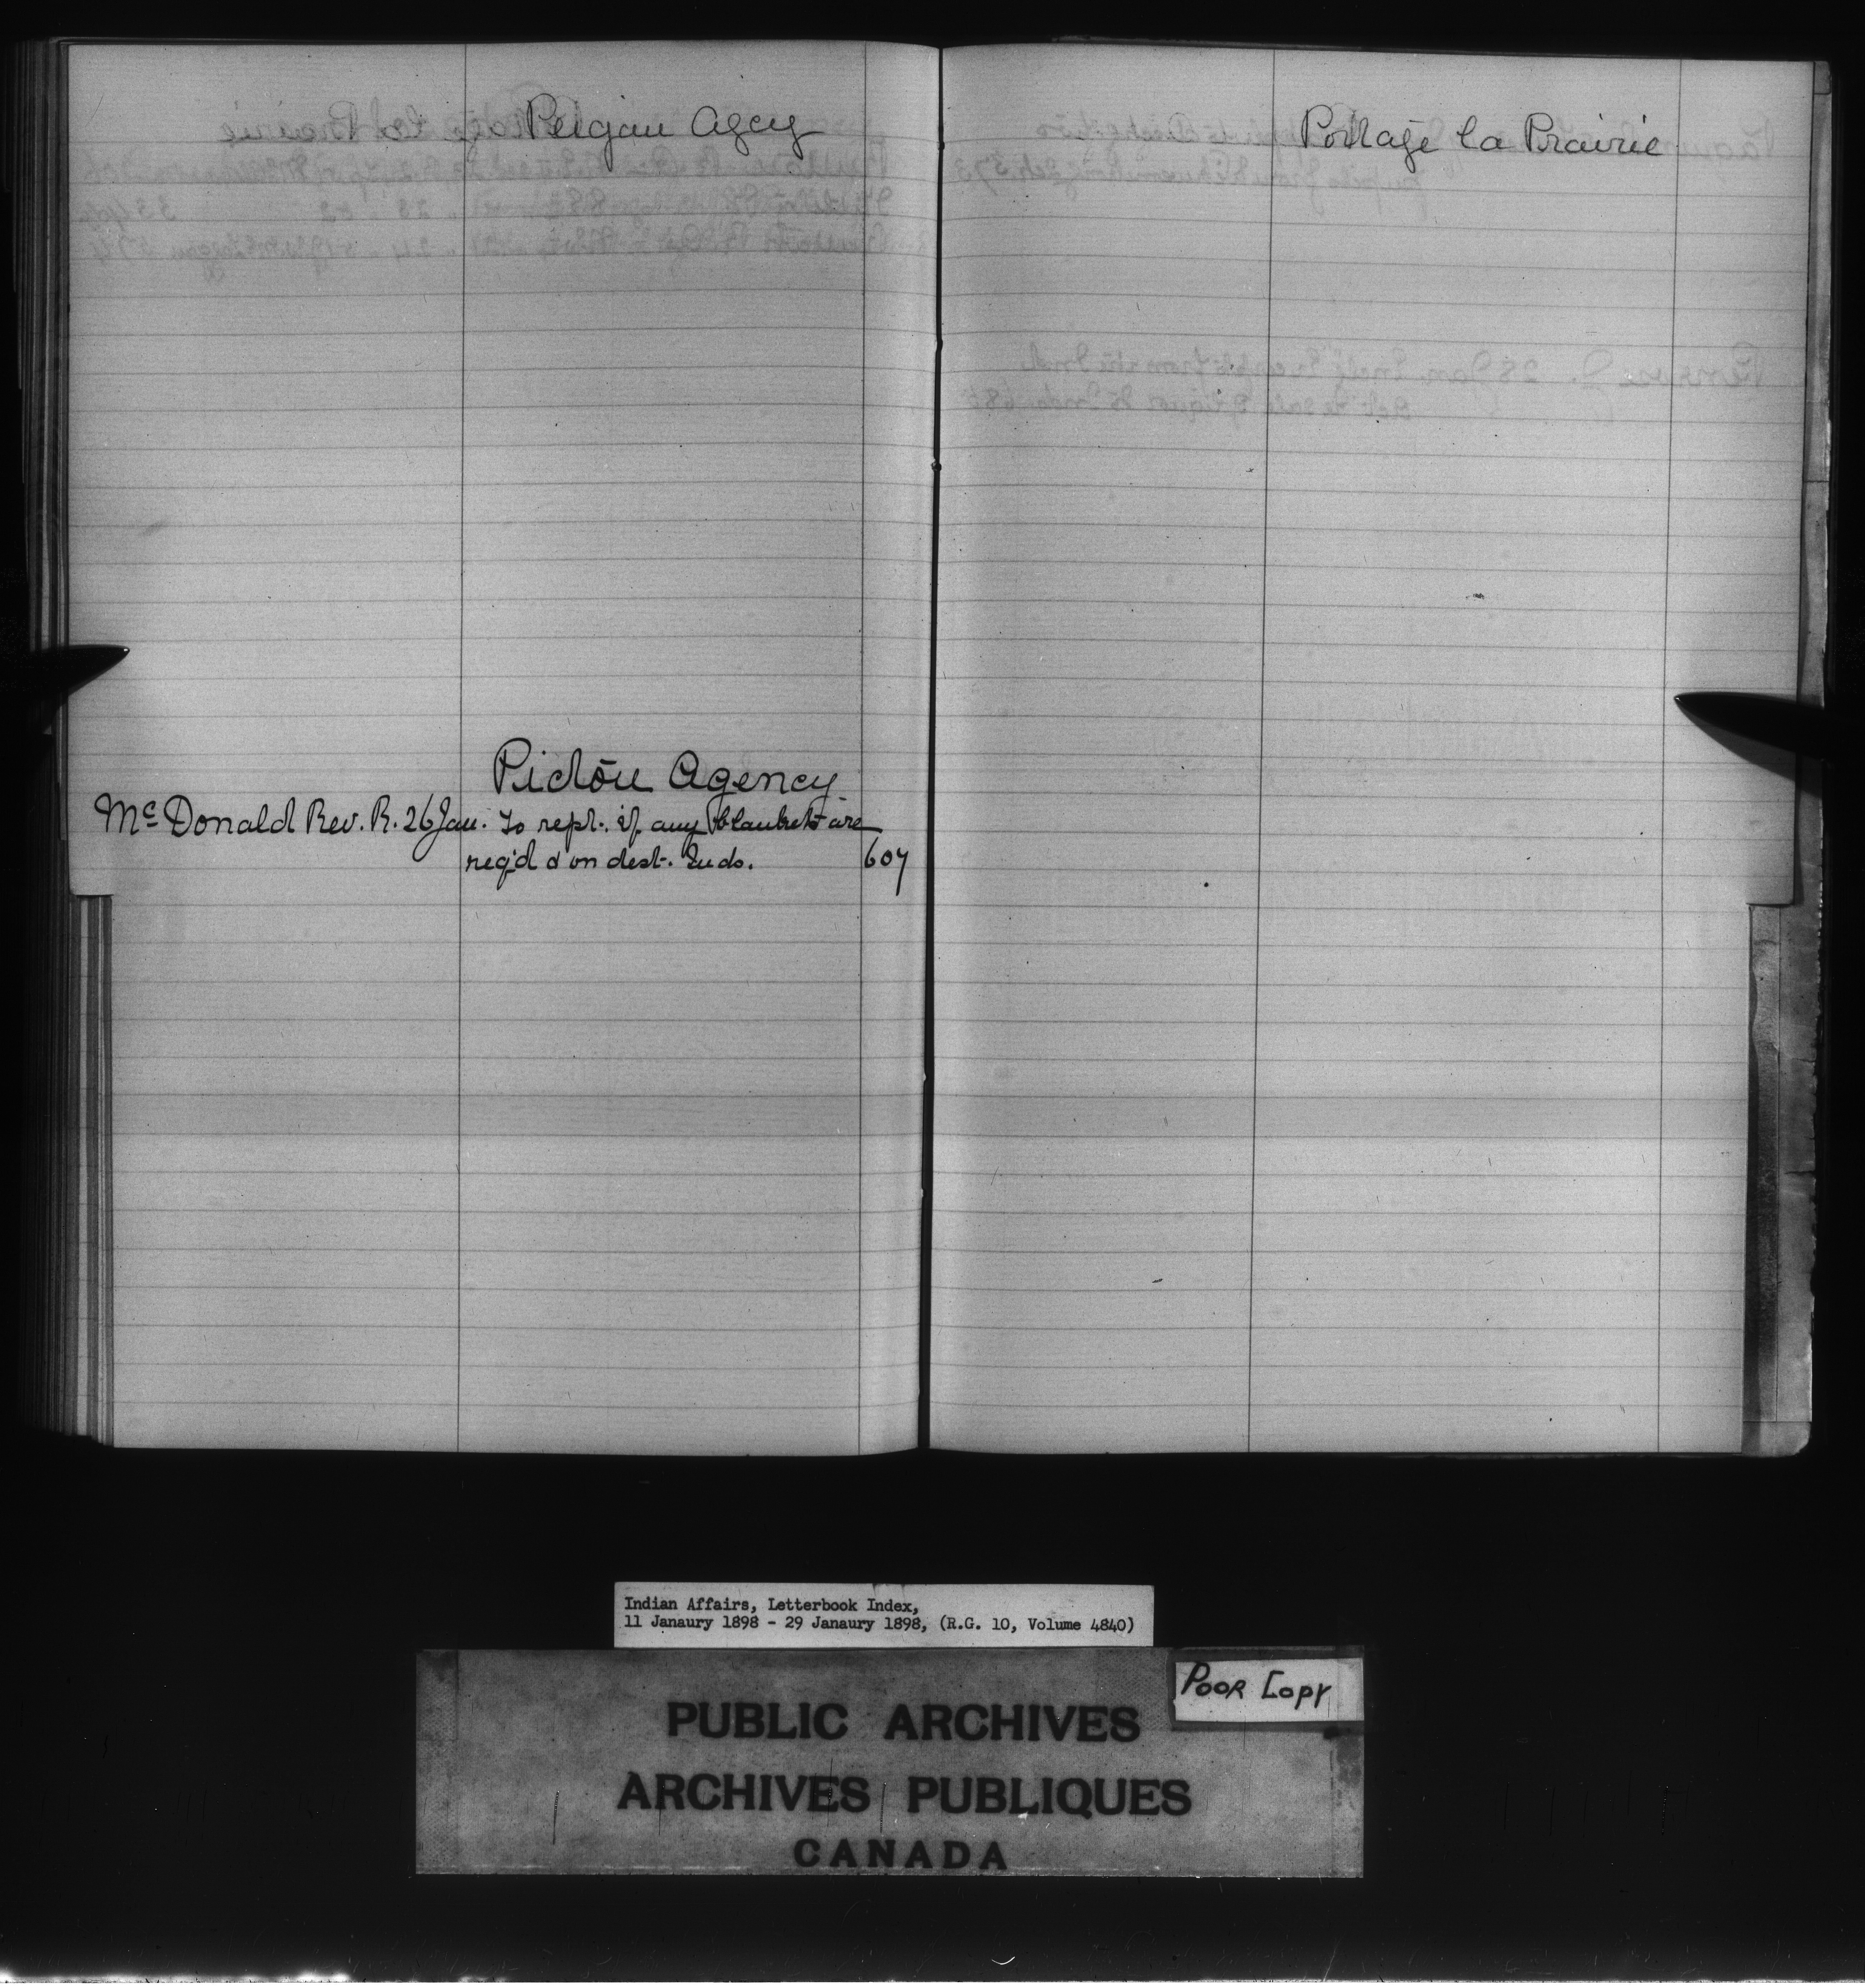 Peigan Agcy
Pictou Agency
Mc Donald Rev. R. 26 Jan. To rept. if any blankets are
req'd d on dest. Inds. 607
Portage la Prairie
Indian Affairs, Letterbook Index,
11 Janaury 1898 - 29 Janaury 1898, (R.G. 10, Volume 4840)
Poor Copy
PUBLIC ARCHIVES
ARCHIVES PUBLIQUES
CANADA